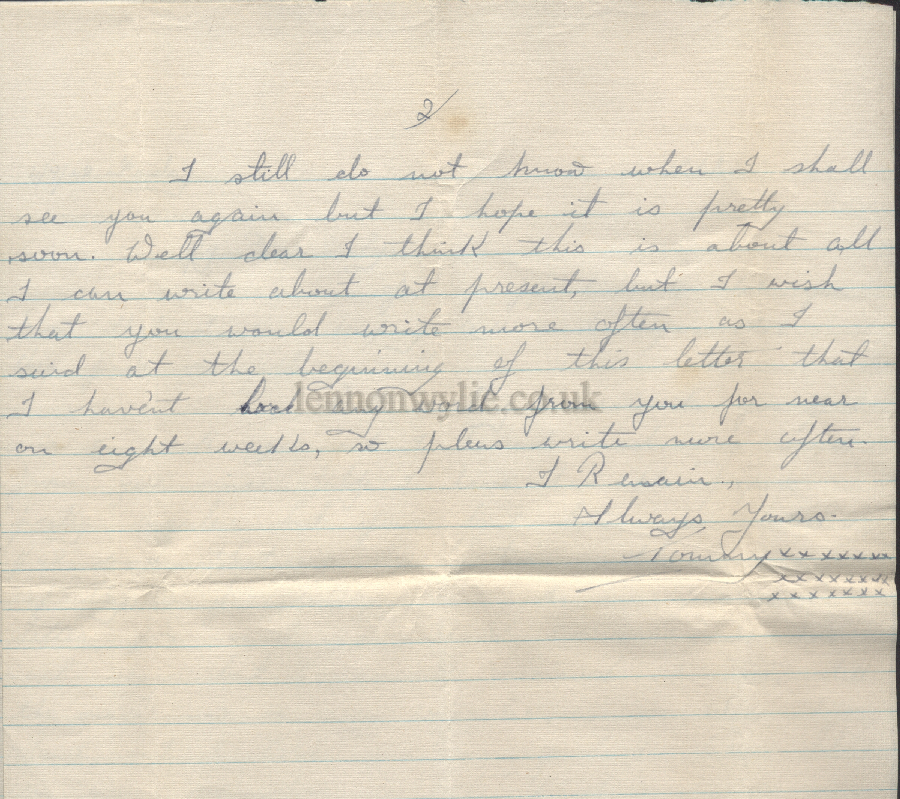 2/
I still do not know when I shall
see you again but I hope it is pretty
soon. Well dear I think this is about all
I can write about at present, but I wish
that you would write more often as I
said at the beginning of this letter that
I haven't had any word from you for near
lennonwylie.co.uk
on eight weeks, so pleas write more often.
I Remain.,
Always, Yours.
Tommy xxxxxxx
xxxxxxx
xxxxxxx